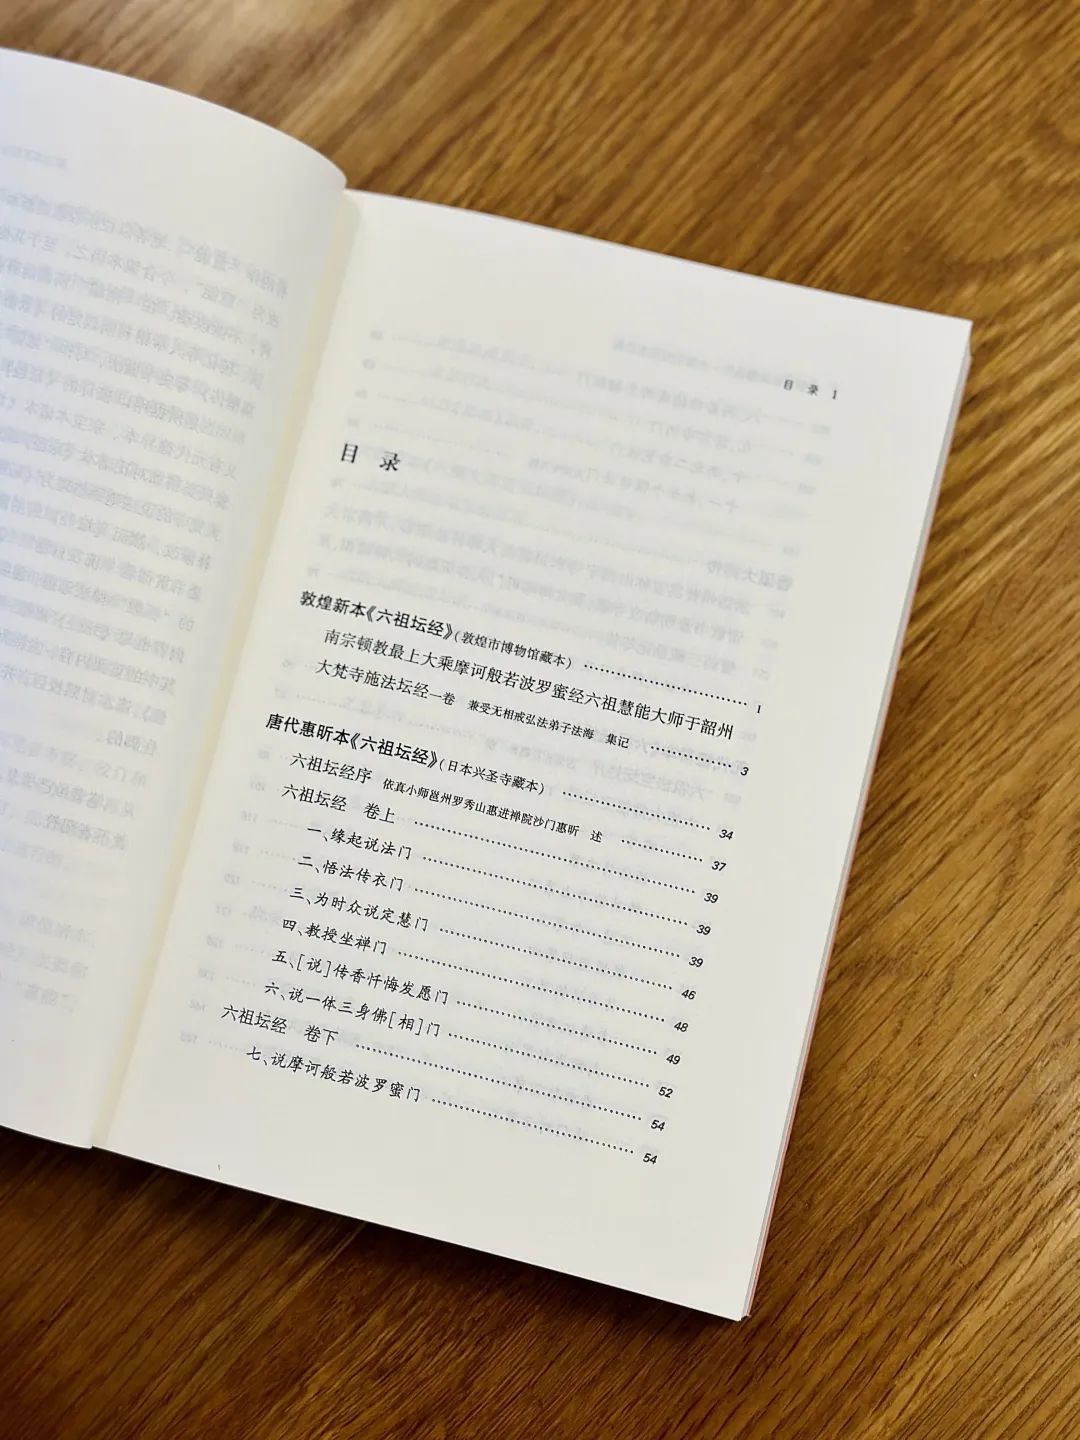 目 录 1
目 录
敦煌新本《六祖坛经》(敦煌市博物馆藏本) …… 1
南宗顿教最上大乘摩诃般若波罗蜜经六祖慧能大师于韶州
大梵寺施法坛经一卷 兼受无相戒弘法弟子法海 集记 …… 3
唐代惠昕本《六祖坛经》(日本兴圣寺藏本) …… 34
六祖坛经序 依真小师邕州罗秀山惠进禅院沙门惠昕 述 …… 37
六祖坛经 卷上 …… 39
一、缘起说法门 …… 39
二、悟法传衣门 …… 39
三、为时众说定慧门 …… 46
四、教授坐禅门 …… 48
五、[说]传香忏悔发愿门 …… 49
六、说一体三身佛[相]门 …… 52
六祖坛经 卷下 …… 54
七、说摩诃般若波罗蜜门 …… 54